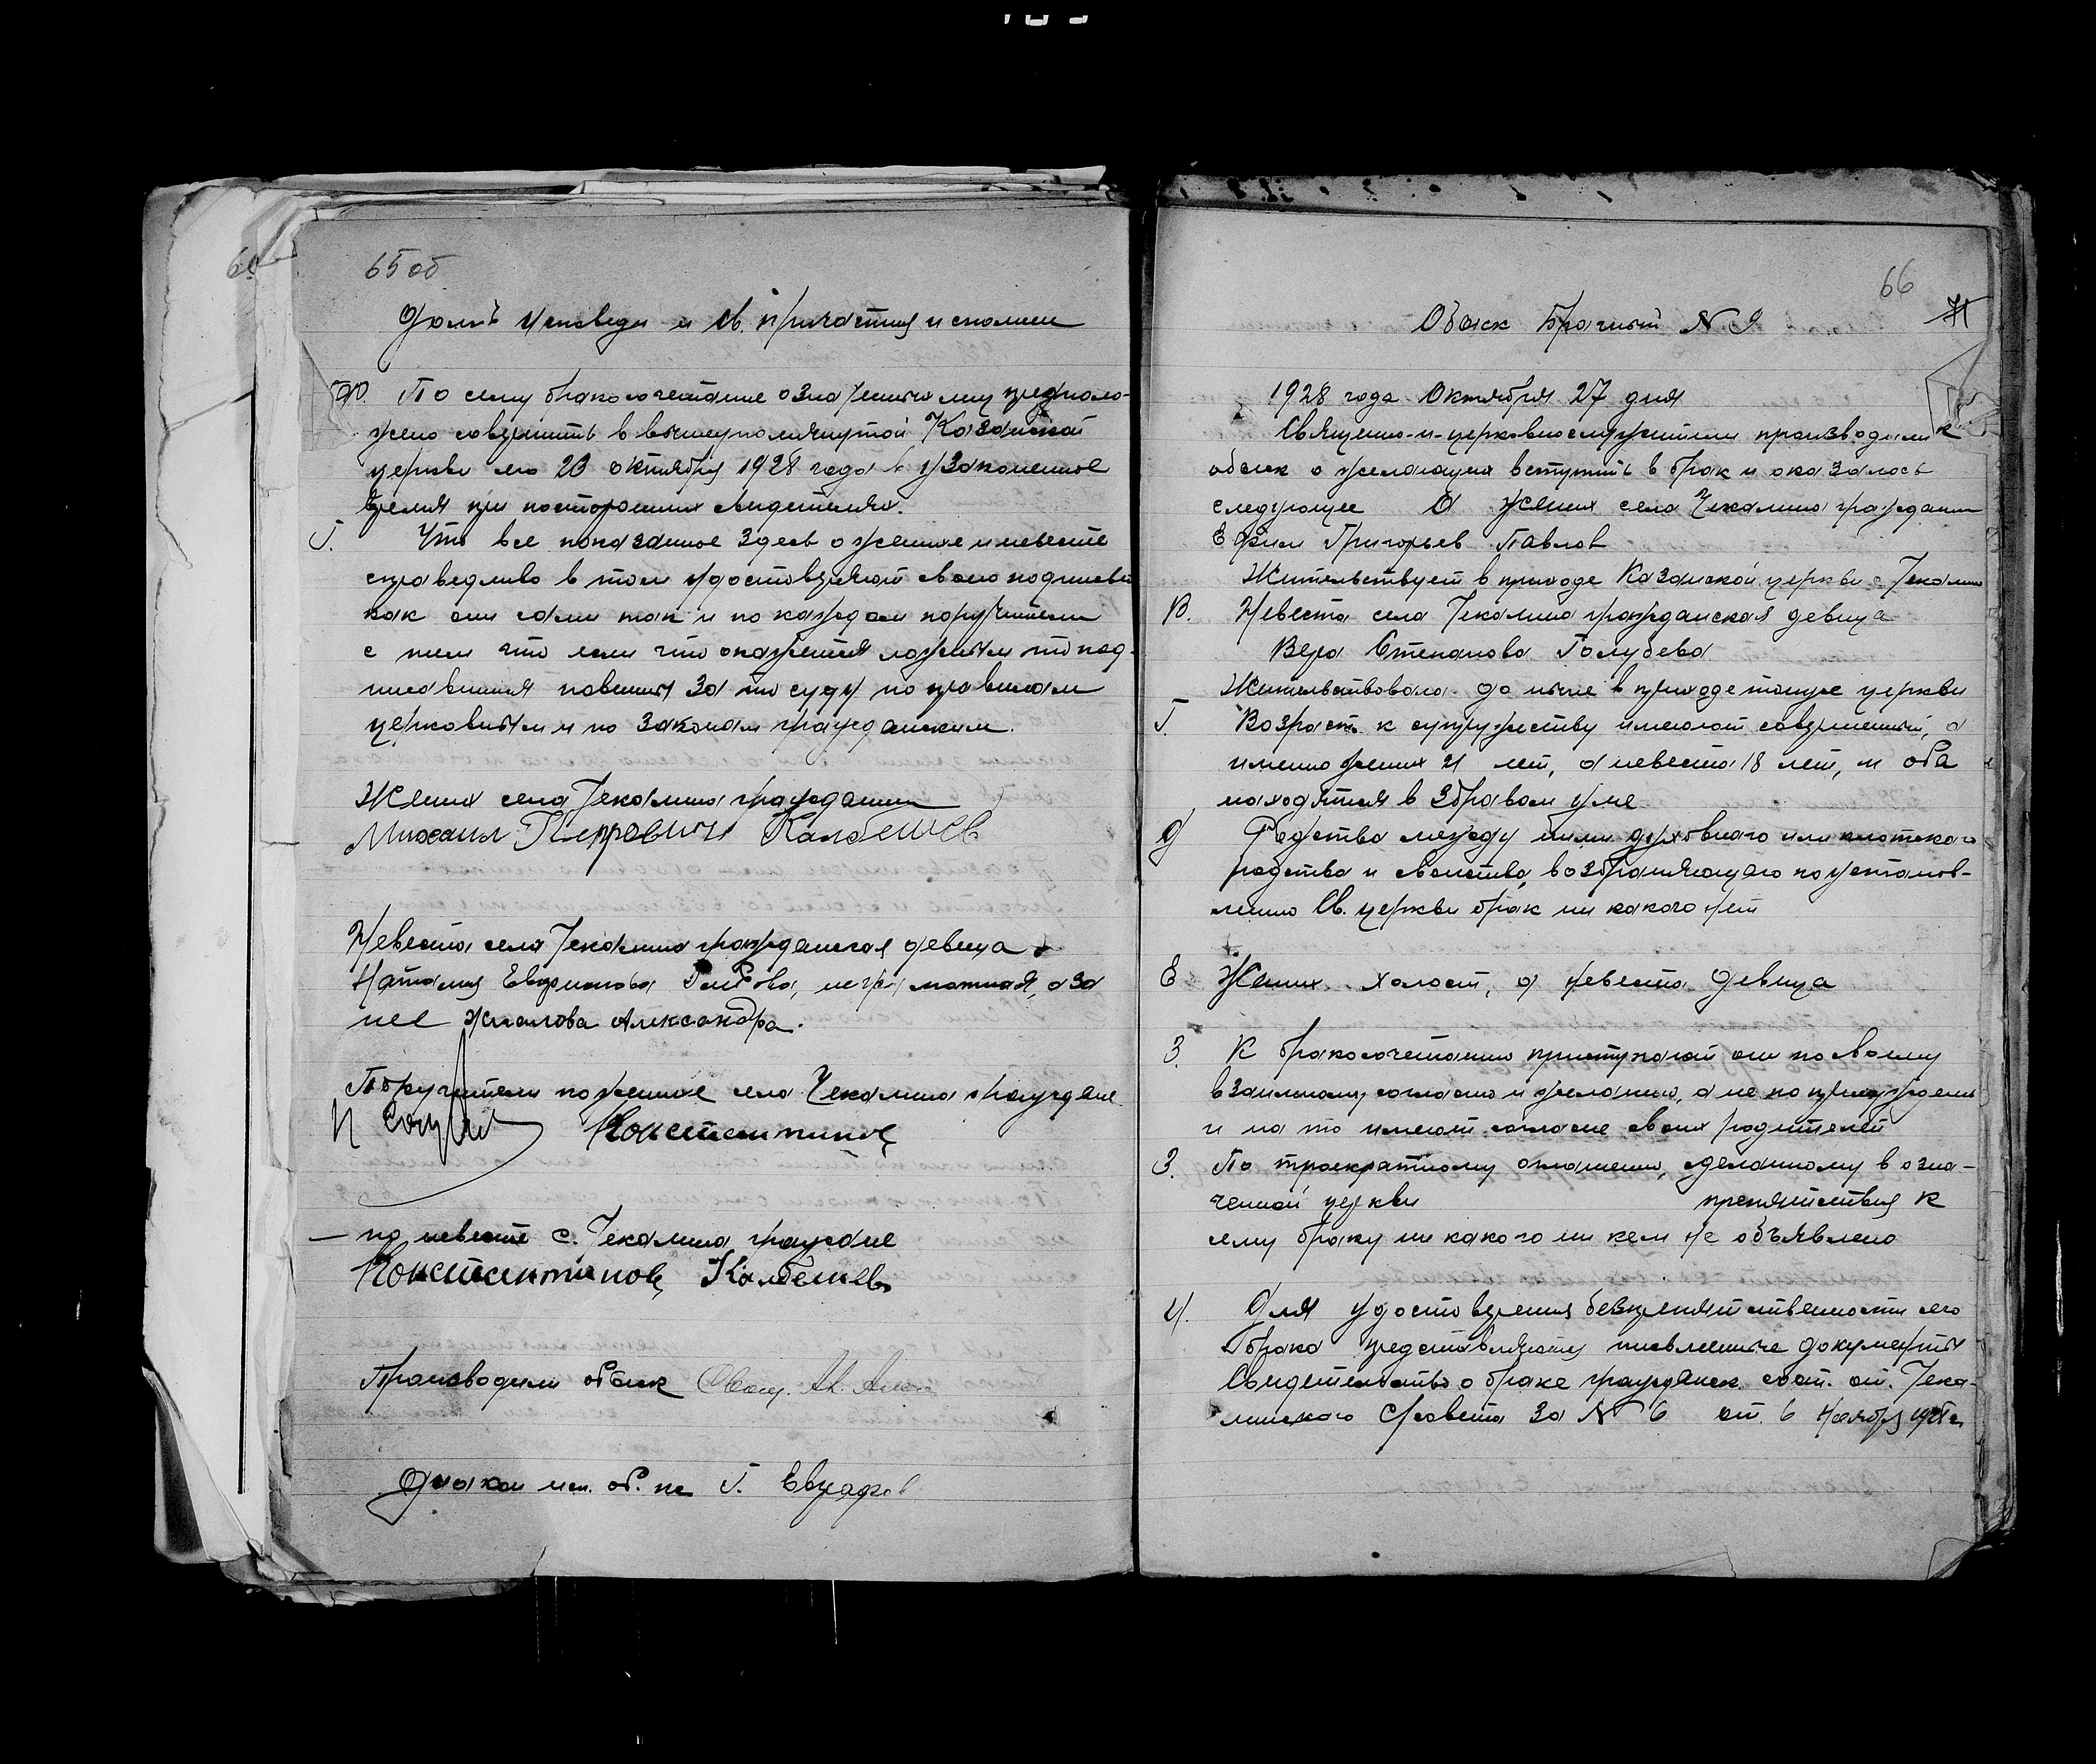 65 об
Долг исповеди и св. причастия исполнен
По сему бракосочетание означенному предполо-
жено совершить в вышеупомянутой Казанской
церкви его 23 октября 1928 года в узаконенное
время при посторонних свидетелях.
Что все показанное здесь о женихе и невесте
справедливо в том удостоверяют своею подписью
как они сами так и по каждом поручители
с тем что если что окажется ложным то под-
писавшиеся повинны за то суду по правилам
церковным и по законам гражданским.
Жених села Чекалина гражданин
Михаил Петрович Калбешев
Невеста села Чекалина гражданская девица
Наталия неграмотная, а за
нее Александра.
Поручители по женихе села Чекалина граждане
Константинов
— по невесте с. Чекалина граждане
Константинов, Калбешев
Производили обыск Свящ.
исп. об. пс. Г.
66
71
Обыск Брачный № 9
1928 года Октября 27 дня
Священно-и-церковнослужители производили
обыск о желающих вступить в брак и оказалось
следующее А жених села Чекалина гражданин
Ефим Григорьев Павлов
Жительствует в приходе Казанской церкви с. Чекалина
В. Невеста села Чекалина гражданская девица
Вера Степанова Голубева
Жительствовала до ныне в приходе тойже церкви
Г. Возраст к супружеству имеют совершенный, а
именно жених 21 лет, а невеста 18 лет, и оба
находятся в здравом уме
Д Родства между ними духовнаго или плотскаго
родства и свойства, возбраняющаго по установ-
лению Св. церкви брак ни какого нет
Е Жених холост, а невеста девица
З. К бракосочетанию приступают они по своему
взаимному согласию и желанию, а не по принуждению
и на то имеют согласие своих родителей
З. По троекратному оглашению, сделанному в озна-
ченной церкви препятствия к
сему браку ни какого ни кем не объявлено
И. Для удостоверения безпрепятственности сего
брака представляются письменные документы
Свидетельство о браке гражданск. сост. от. Чека-
линского С/совета за № 6 от 6 Ноября